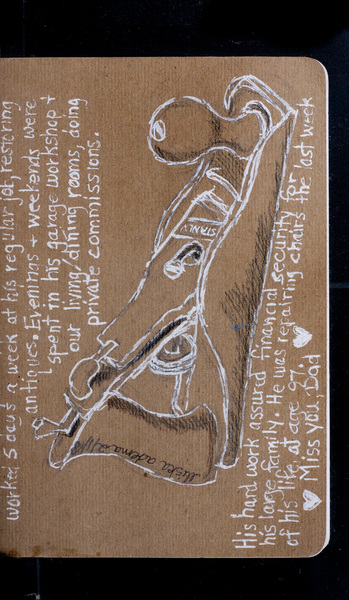 worked 5 days a week at his regular job, restoring
antiques. Evenings + weekends were
spent in his garage workshop +
our living/dining rooms, doing
private commissions.
STANLY
His hard work assured financial security for
his large family. He was repairing chairs the last week
of his life, at age 97.
Miss you, Dad